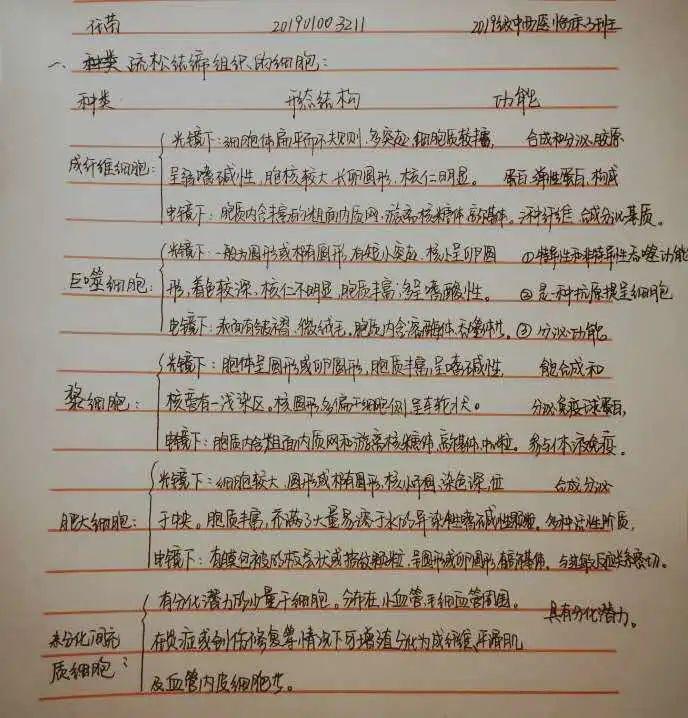 任蕾 201901003211 2019级中西医临床3班
一、种类 疏松结缔组织的细胞:
种类 形态结构 功能
光镜下:细胞体扁平而不规则,多突起,细胞质较丰富, 合成和分泌胶原
成纤维细胞: 呈弱嗜碱性,胞核较大,长卵圆形,核仁明显。 蛋白、弹性蛋白,构成
电镜下:胞质内含丰富的粗面内质网、游离核糖体、高尔基体。 三种纤维 合成分泌基质。
光镜下:一般为圆形或椭圆形,有短小突起,核小呈卵圆 ①特异性和非特异性吞噬功能
巨噬细胞: 形,着色较深,核仁不明显,胞质丰富,多呈嗜酸性。 ②是一种抗原提呈细胞
电镜下:表面有皱褶、微绒毛。胞质内含溶酶体、吞噬体等。 ③分泌功能
光镜下:胞体呈圆形或卵圆形,胞质丰富,呈嗜碱性, 能合成和
浆细胞: 核旁有一浅染区。核圆形,多偏于细胞一侧,呈车轮状。 分泌免疫球蛋白,
电镜下:胞质内含粗面内质网和游离核糖体、高尔基体、中心粒。 参与体液免疫。
光镜下:细胞较大,圆形或椭圆形,核小而圆,染色深,位 合成分泌
肥大细胞: 于中央。胞质丰富,充满了大量易溶于水的异染性嗜碱性颗粒。 多种活性介质,
电镜下:有膜包被的板层状或指纹颗粒,呈圆形或卵圆形,有高尔基体。 与过敏反应关系密切。
有分化潜力的少量干细胞。分布在小血管、毛细血管周围。 具有分化潜力。
未分化间充质细胞: 在炎症或创伤修复等情况下可增殖分化为成纤维、平滑肌
及血管内皮细胞等。